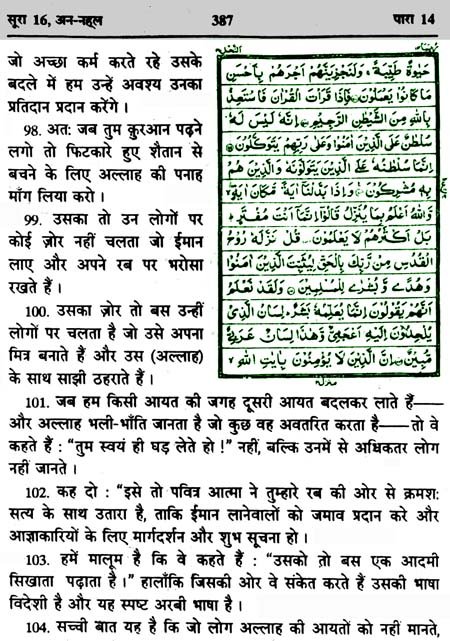 सूरा 16, अन-नह्ल 387 पारा 14
जो अच्छा कर्म करते रहे उसके
बदले में हम उन्हें अवश्य उनका
प्रतिदान प्रदान करेंगे ।
98. अतः जब तुम क़ुरआन पढ़ने
लगो तो फिटकारे हुए शैतान से
बचने के लिए अल्लाह की पनाह
माँग लिया करो ।
99. उसका तो उन लोगों पर
कोई ज़ोर नहीं चलता जो ईमान
लाए और अपने रब पर भरोसा
रखते हैं ।
100. उसका ज़ोर तो बस उन्हीं
लोगों पर चलता है जो उसे अपना
मित्र बनाते हैं और उस (अल्लाह)
के साथ साझी ठहराते हैं ।
حَيٰوةً طَيِّبَةً ۚ وَلَنَجْزِيَنَّهُمْ اَجْرَهُمْ بِاَحْسَنِ
مَا كَانُوْا يَعْمَلُوْنَ ۞ فَاِذَا قَرَاْتَ الْقُرْاٰنَ فَاسْتَعِذْ
بِاللّٰهِ مِنَ الشَّيْطٰنِ الرَّجِيْمِ ۞ اِنَّهٗ لَيْسَ لَهٗ
سُلْطٰنٌ عَلَى الَّذِيْنَ اٰمَنُوْا وَعَلٰى رَبِّهِمْ يَتَوَكَّلُوْنَ ۞
اِنَّمَا سُلْطٰنُهٗ عَلَى الَّذِيْنَ يَتَوَلَّوْنَهٗ وَالَّذِيْنَ هُمْ
بِهٖ مُشْرِكُوْنَ ۞ وَاِذَا بَدَّلْنَآ اٰيَةً مَّكَانَ اٰيَةٍ ۙ
وَّاللّٰهُ اَعْلَمُ بِمَا يُنَزِّلُ قَالُوْٓا اِنَّمَآ اَنْتَ مُفْتَرٍ ؕ
بَلْ اَكْثَرُهُمْ لَا يَعْلَمُوْنَ ۞ قُلْ نَزَّلَهٗ رُوْحُ
الْقُدُسِ مِنْ رَّبِّكَ بِالْحَقِّ لِيُثَبِّتَ الَّذِيْنَ اٰمَنُوْا
وَهُدًى وَّبُشْرٰى لِلْمُسْلِمِيْنَ ۞ وَلَقَدْ نَعْلَمُ
اَنَّهُمْ يَقُوْلُوْنَ اِنَّمَا يُعَلِّمُهٗ بَشَرٌ ؕ لِسَانُ الَّذِيْ
يُلْحِدُوْنَ اِلَيْهِ اَعْجَمِيٌّ وَّهٰذَا لِسَانٌ عَرَبِيٌّ
مُّبِيْنٌ ۞ اِنَّ الَّذِيْنَ لَا يُؤْمِنُوْنَ بِاٰيٰتِ اللّٰهِ ۙ
101. जब हम किसी आयत की जगह दूसरी आयत बदलकर लाते हैं—
और अल्लाह भली-भाँति जानता है जो कुछ वह अवतरित करता है—तो वे
कहते हैं : “तुम स्वयं ही घड़ लेते हो !” नहीं, बल्कि उनमें से अधिकतर लोग
नहीं जानते ।
102. कह दो : “इसे तो पवित्र आत्मा ने तुम्हारे रब की ओर से क्रमशः
सत्य के साथ उतारा है, ताकि ईमान लानेवालों को जमाव प्रदान करे और
आज्ञाकारियों के लिए मार्गदर्शन और शुभ सूचना हो ।
103. हमें मालूम है कि वे कहते हैं : “उसको तो बस एक आदमी
सिखाता पढ़ाता है ।” हालाँकि जिसकी ओर वे संकेत करते हैं उसकी भाषा
विदेशी है और यह स्पष्ट अरबी भाषा है ।
104. सच्ची बात यह है कि जो लोग अल्लाह की आयतों को नहीं मानते,